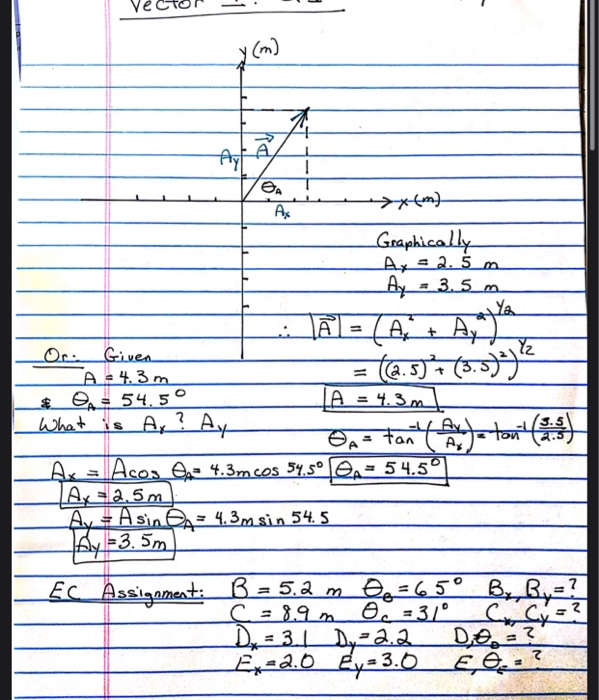 Vector
y (m)
Ay A
θA
Ax
x (m)
Graphically
Ax = 2.5 m
Ay = 3.5 m
∴ |A| = (Ax² + Ay²)^1/2
Or: Given
A = 4.3 m
& θA = 54.5°
What is Ax? Ay
= ((2.5)² + (3.5)²)^1/2
A = 4.3 m
θA = tan⁻¹(Ay/Ax) = tan⁻¹(3.5/2.5)
θA = 54.5°
Ax = A cos θA = 4.3m cos 54.5°
Ax = 2.5 m
Ay = A sin θA = 4.3m sin 54.5
Ay = 3.5m
EC Assignment: B = 5.2 m θB = 65° Bx, By = ?
C = 8.9 m θc = 31° Cx, Cy = ?
Dx = 3.1 Dy = 2.2 D, θD = ?
Ex = 2.0 Ey = 3.0 E, θE = ?